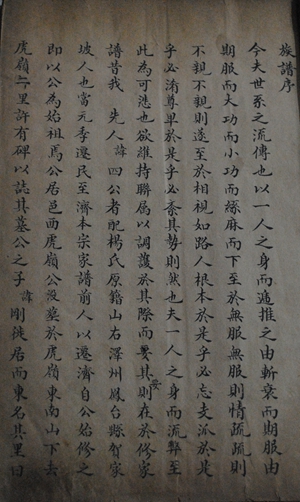 族譜序
今夫世系之流傳也以一人之身而遞推之由斬衰而期服由
期服而大功而小功而緦麻而下至於無服無服則情疏疏則
不親不親則遂至於相視如路人根本於是乎必忘支派於是
乎必淆尊卑於是乎必紊其勢則然也夫一人之身而流弊至
此為可慨也欲維持聯屬以調護於其際而要其則在於修家
譜昔我 先人諱四公者配楊氏原籍山右澤州鳳台縣賀家
坡人也當元季遷民至濟本宗家譜前人以遷濟自公始修之
即以公為始祖焉公居邑西虎嶺公歿塟於虎嶺東南山下去
虎嶺六里許有碑以誌其墓公之子諱剛徙居而東名其里曰